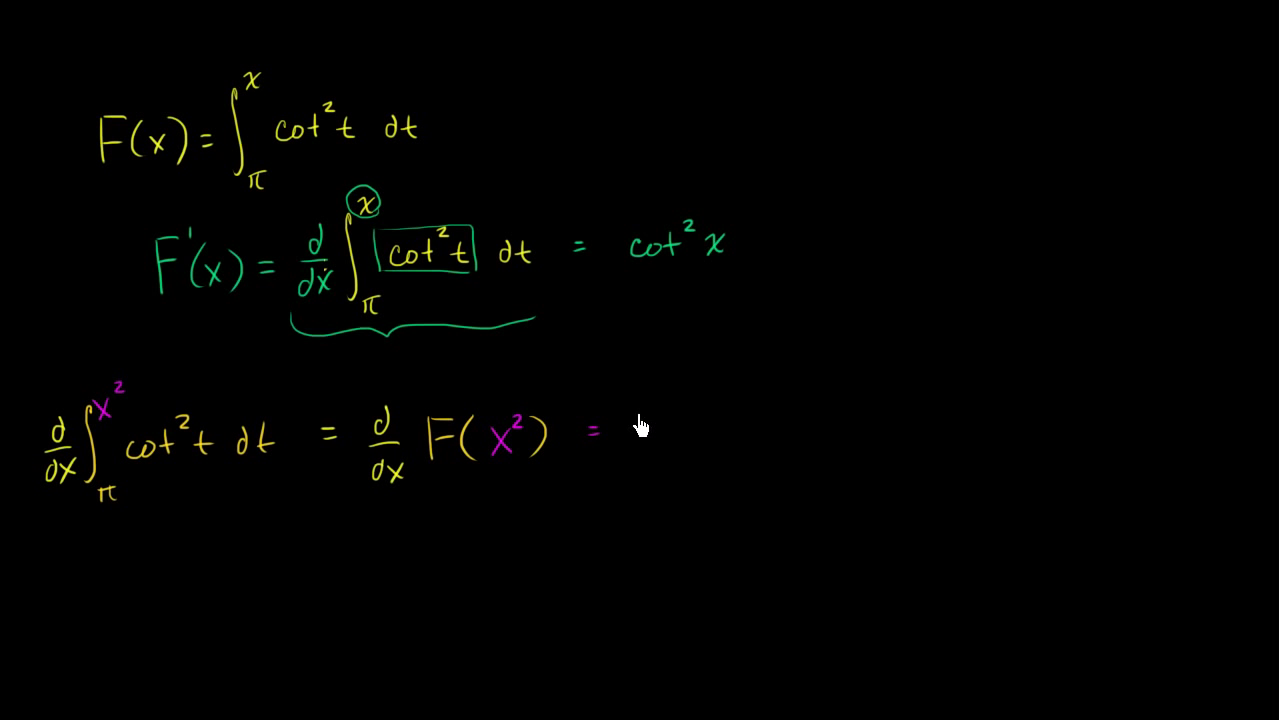 F(x) = ∫_π^x cot² t dt
F'(x) = d/dx ∫_π^x cot² t dt = cot² x
d/dx ∫_π^x² cot² t dt = d/dx F(x²) =